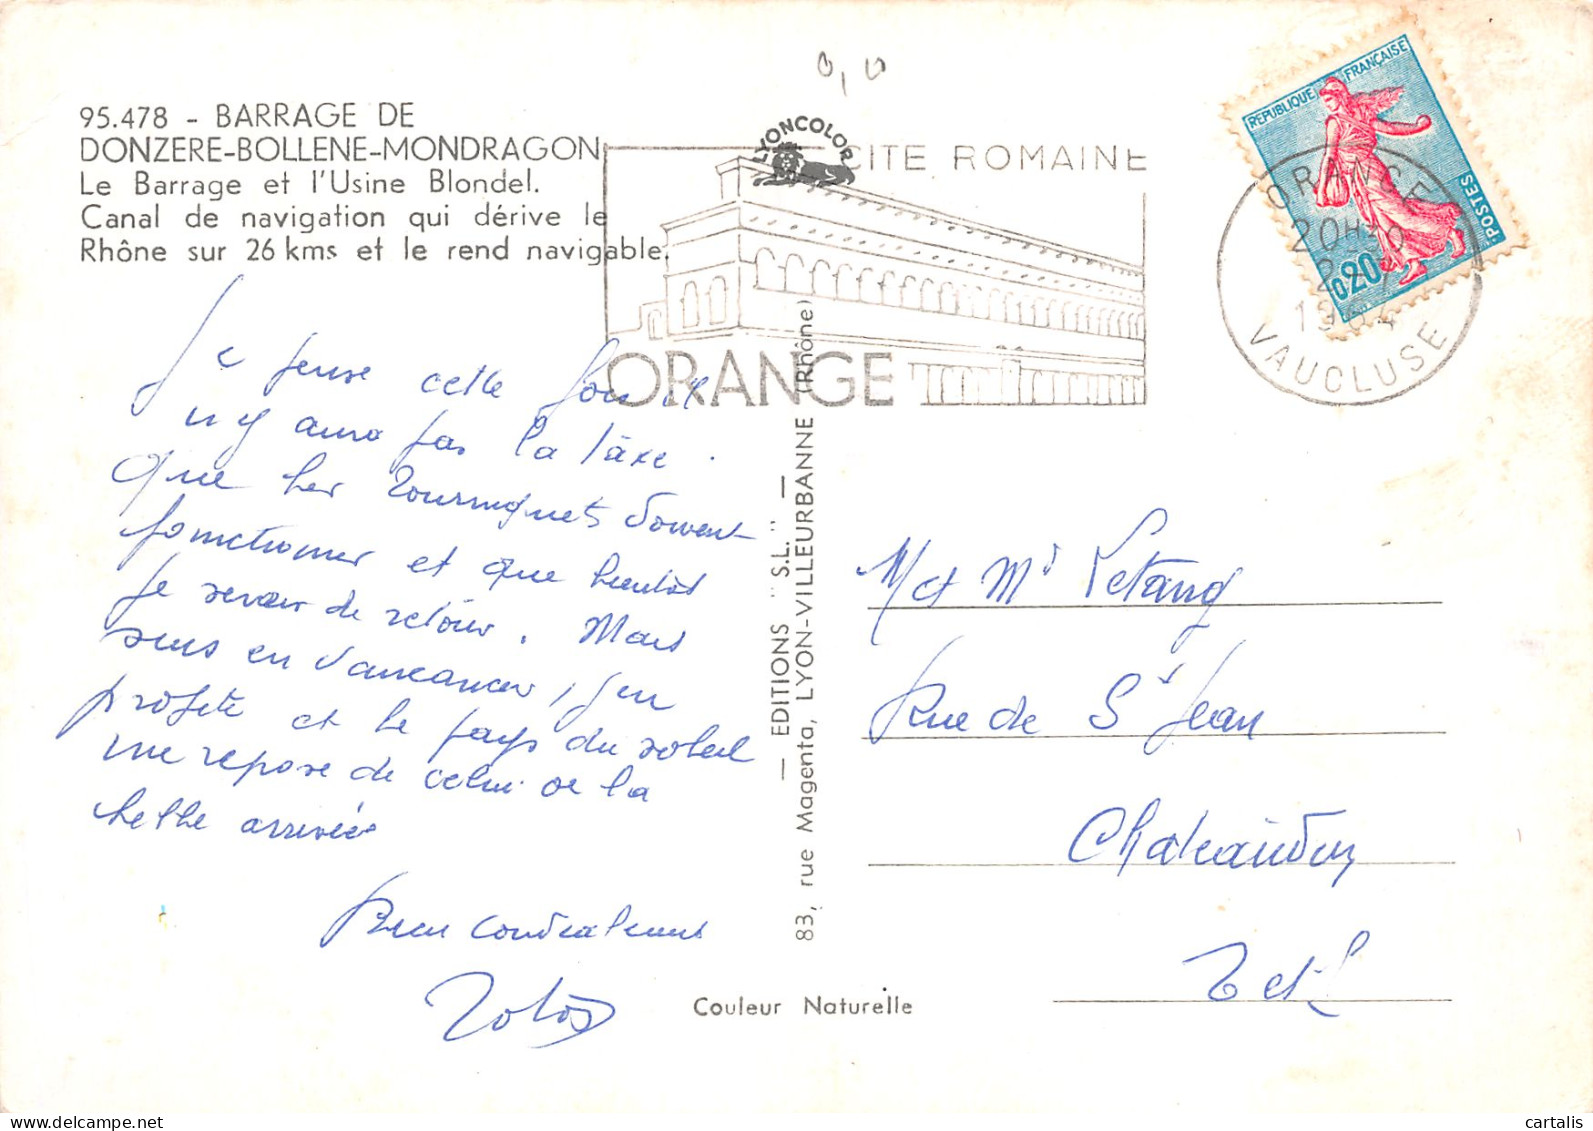 95.478 - BARRAGE DE
DONZERE-BOLLENE-MONDRAGON
Le Barrage et l'Usine Blondel.
Canal de navigation qui dérive le
Rhône sur 26 kms et le rend navigable.
LYONCOLOR
CITE ROMAINE
ORANGE
REPUBLIQUE FRANÇAISE
POSTES
0,20
ORANGE
20H30
1964
VAUCLUSE
Je pense cette fois il
n'y aura pas la taxe.
Que les Tourniquets doivent
fonctionner et que bientôt
je serai de retour. Mais
suis en vacances, j'en
profite et le pays du soleil
me repose de celui de la
belle arrivée
Bien cordialement
— EDITIONS "S.L." —
83, rue Magenta, LYON-VILLEURBANNE (Rhône)
M et Me Letang
Rue de St Jean
Chateaudun
E et L
Couleur Naturelle
cartalis